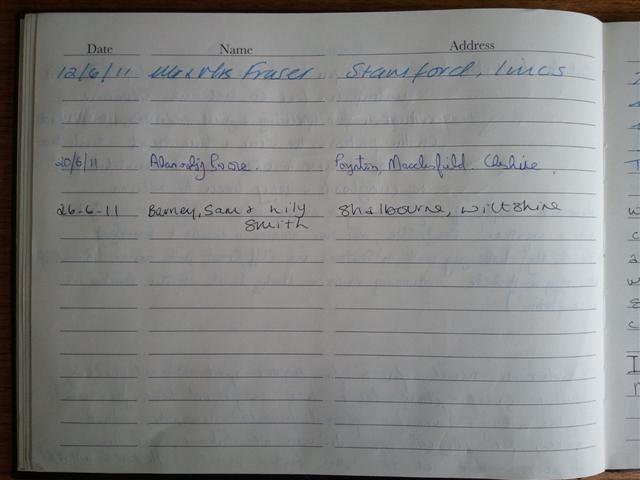 Date Name Address
12/6/11 Mr & Mrs Fraser Stamford, Lincs
20/6/11 Alan & Liz Poynton, Macclesfield. Cheshire.
26-6-11 Barney, Sam & Lily Shalbourne, Wiltshire
Smith